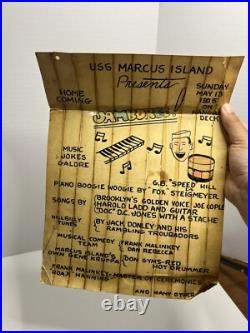 USS MARCUS ISLAND
Presents
HOME
COMING
SUNDAY
MAY 13
JAMBOREE
MUSIC
JOKES
GALORE
PIANO BOOGIE WOOGIE BY G.B. "SPEED" HILL
FOX STEIGMEYER
SONGS BY BROOKLYN'S GOLDEN VOICE JOE COPLE
HAROLD LADD AND GUITAR
"DOC" D.C. JONES WITH A STACHE
HILLBILLY
TUNES BY JACK DONLEY AND HIS
RAMBLING TROUBADORS
MUSICAL COMEDY
TEAM FRANK MALINKEY
DAN REBECCA
MARCUS ISLAND'S
OWN GENE KRUPA DON SYMS-RED
HOT DRUMMER
FRANK MALINKEY-MASTER OF CEREMONIES
AND MANY OTHERS